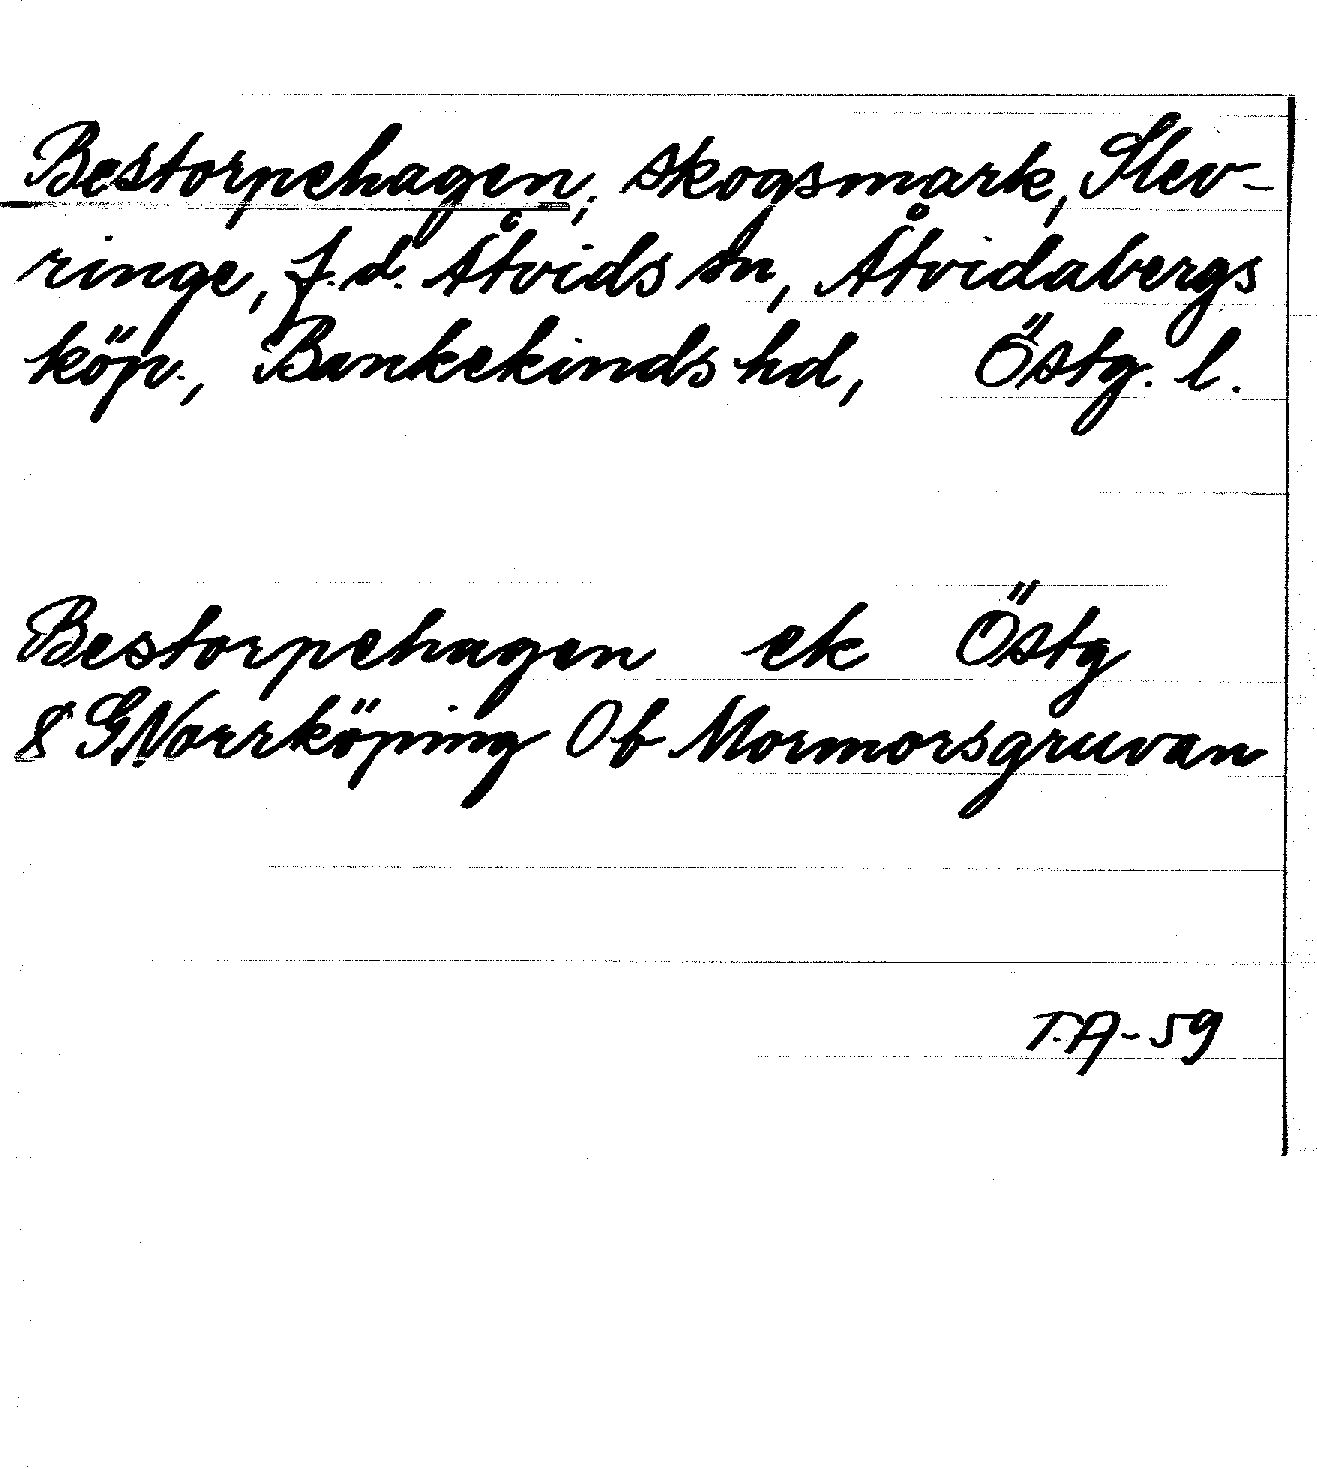 Bestorpehagen, skogsmark, Slev-
ringe, f.d. Åtvids sn, Åtvidabergs
köp., Bankekinds hd, Östg. l.
Bestorpehagen ek Östg
8 GNorrköping Of Mormorsgruvan
T.A-59